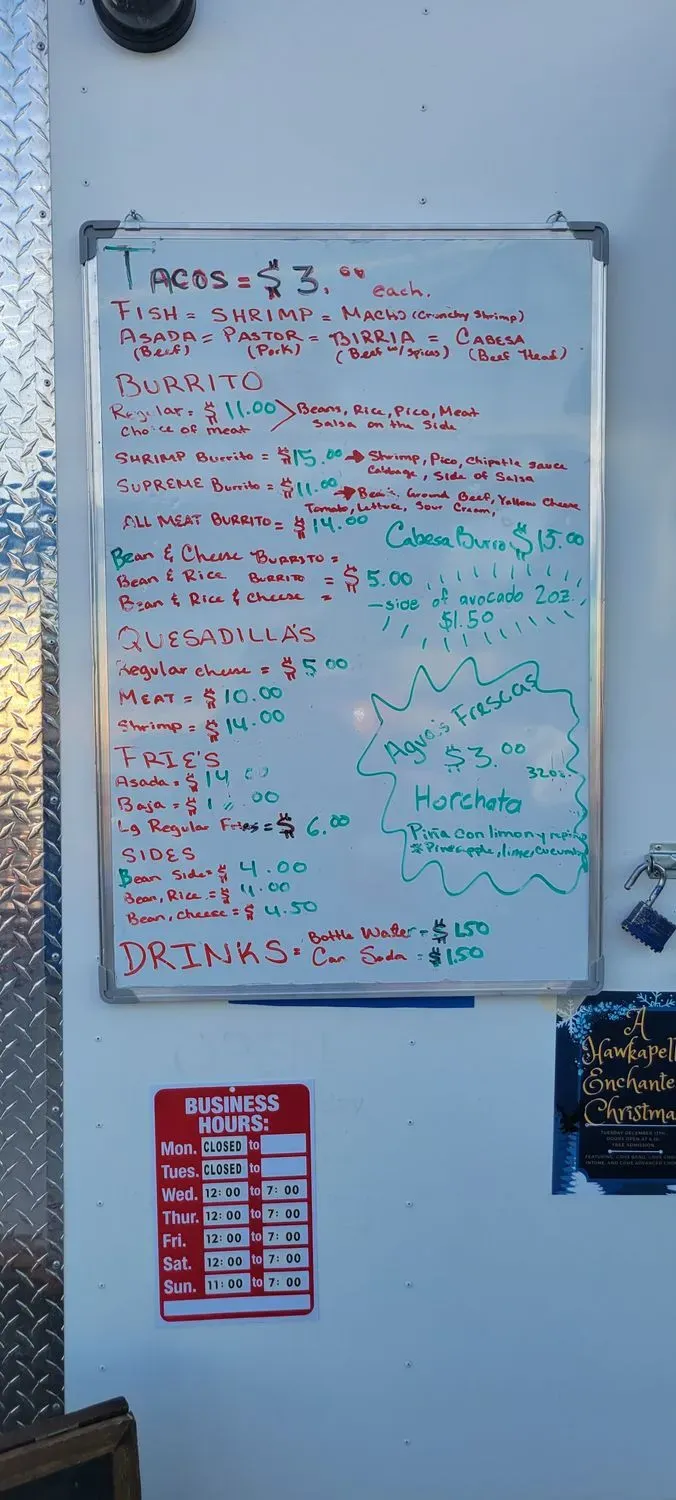 TACOS = $3. each.
FISH = SHRIMP = MACHO (Crunchy Shrimp)
ASADA = PASTOR = BIRRIA = CABESA
(Beef) (Pork) (Beef w/ Spices) (Beef Head)
BURRITO
Regular = $11.00 Beans, Rice, Pico, Meat
Choice of meat Salsa on the Side
SHRIMP Burrito = $15.00 → Shrimp, Pico, Chipotle sauce
Cabbage, Side of Salsa
SUPREME Burrito = $11.00 → Ground Beef, Yellow Cheese
Tomato, Lettuce, Sour Cream,
ALL MEAT BURRITO = $14.00
Cabesa Burro $15.00
Bean & Cheese BURRITO =
Bean & Rice BURRITO = $5.00
Bean & Rice & Cheese =
- side of avocado 2oz.
$1.50
QUESADILLA'S
Regular cheese = $5.00
MEAT = $10.00
Shrimp = $14.00
Agua's Frescas
$3.00
32oz.
Horchata
Piña con limon y
*Pineapple, lime, cucumber
FRIE'S
Asada = $14
Baja = $
Lg Regular Fries = $6.00
SIDES
Bean Side = $4.00
Bean, Rice = $4.00
Bean, cheese = $4.50
DRINKS = Bottle Water = $1.50
Can Soda = $1.50
A
Hawkapell
Enchante
Christma
TUESDAY DECEMBER 13TH
FREE ADMISSION
BUSINESS
HOURS:
Mon. CLOSED to
Tues. CLOSED to
Wed. 12:00 to 7:00
Thur. 12:00 to 7:00
Fri. 12:00 to 7:00
Sat. 12:00 to 7:00
Sun. 11:00 to 7:00